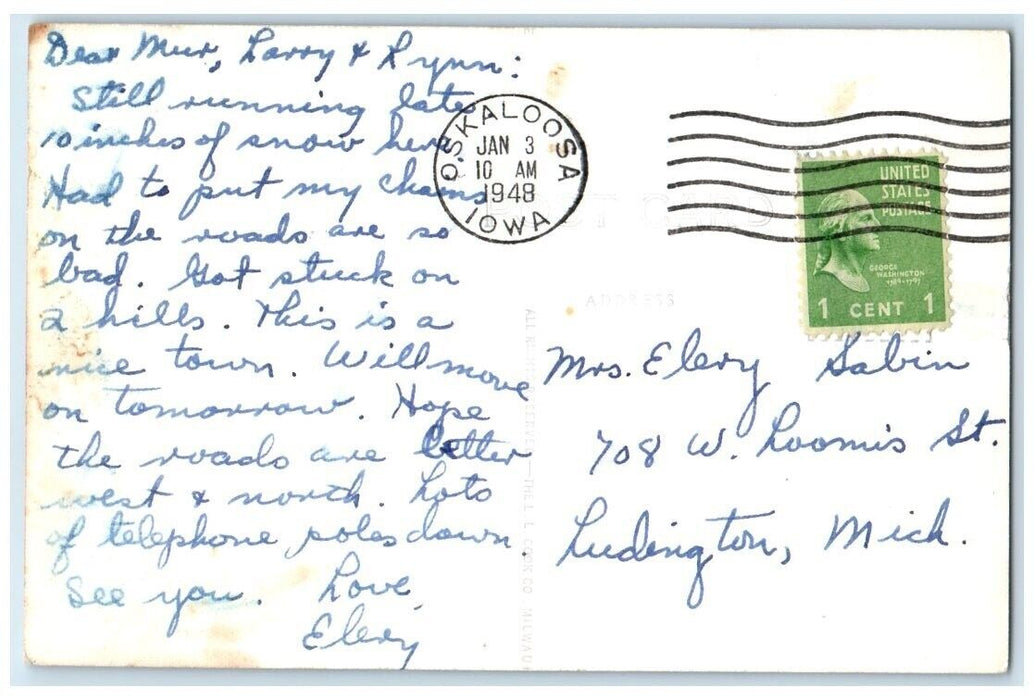 Dear Mur, Larry & Lynn:
Still running late
10 inches of snow here
Had to put my chains
on the roads are so
bad. Got stuck on
2 hills. This is a
nice town. Will move
on tomorrow. Hope
the roads are better
west & north. Lots
of telephone poles down.
See you. Love,
Elery
OSKALOOSA
JAN 3
10 AM
1948
IOWA
UNITED
STATES
POSTAGE
GEORGE
WASHINGTON
1789-1797
1 CENT 1
POST CARD
ADDRESS
Mrs. Elery Sabin
708 W. Loomis St.
Ludington, Mich.
ALL RIGHTS RESERVED—THE L. L. COOK CO. MILWAUK